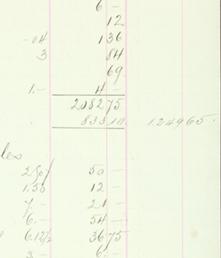 6 -
12
.04 136
3 84
69
1.- 4 -
2082 75
833 10 1249 65
les
2.50 50 -
1.50 12 -
7.- 21 -
6.- 54 -
6.12½ 36 75
3.- 6 -